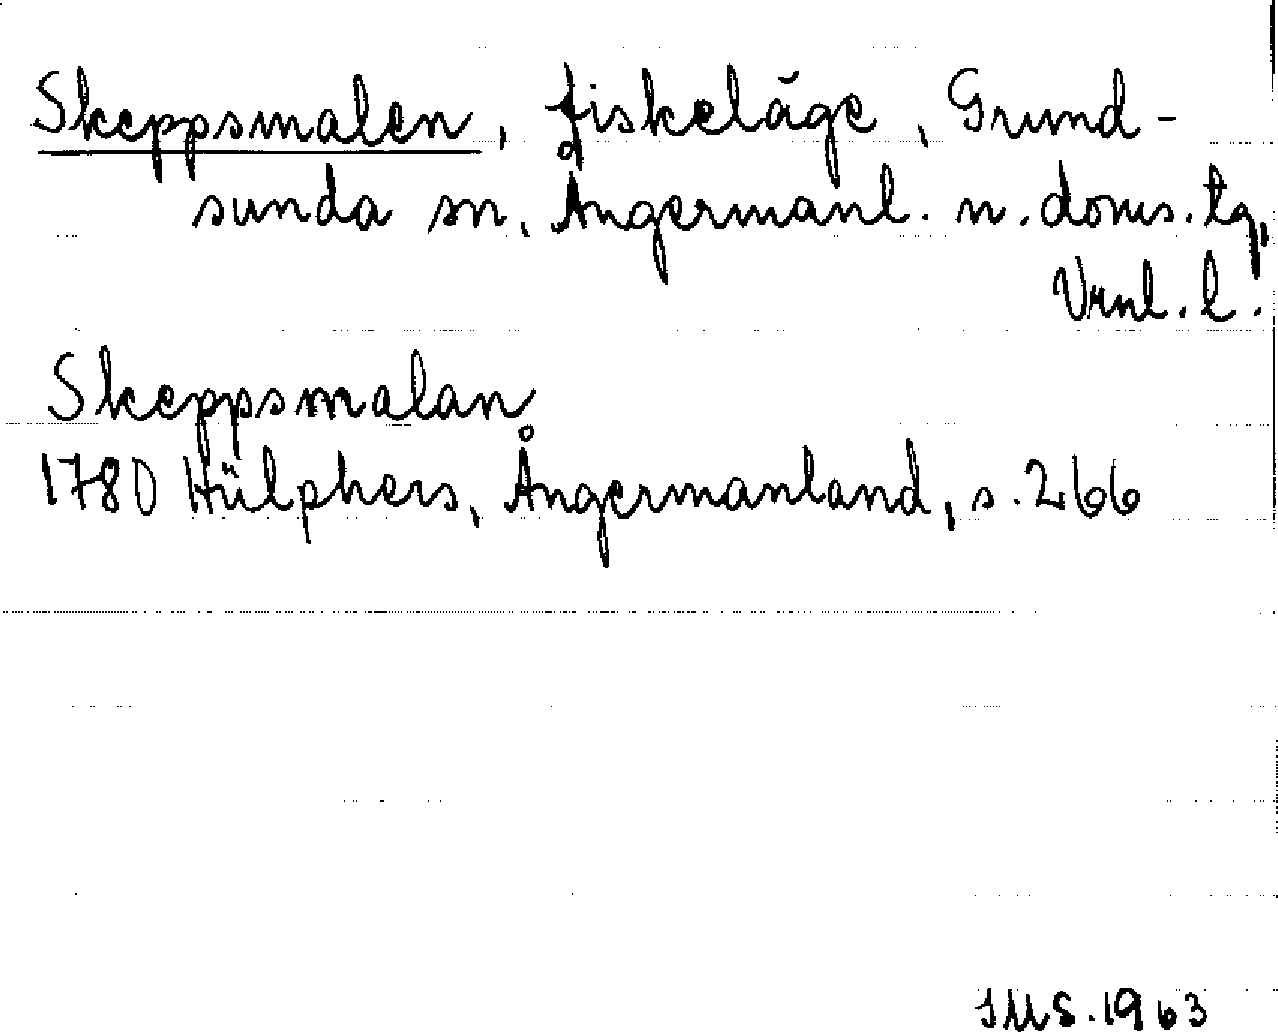 Skeppsmalen, fiskeläge, Grund-
sunda sn, Ångermanl. n. doms. tg,
Vrnl. l.
Skeppsmalan
1780 Hülphers, Ångermanland, s. 266
IMS. 1963